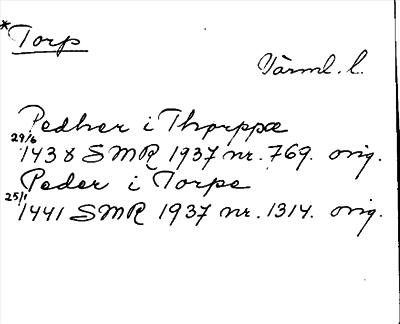 *Torp
Värml. l.
Pedher i Thorppæ
29/6 1438 SMR 1937 nr. 769. orig.
Peder i Torpe
25/1 1441 SMR 1937 nr. 1314. orig.